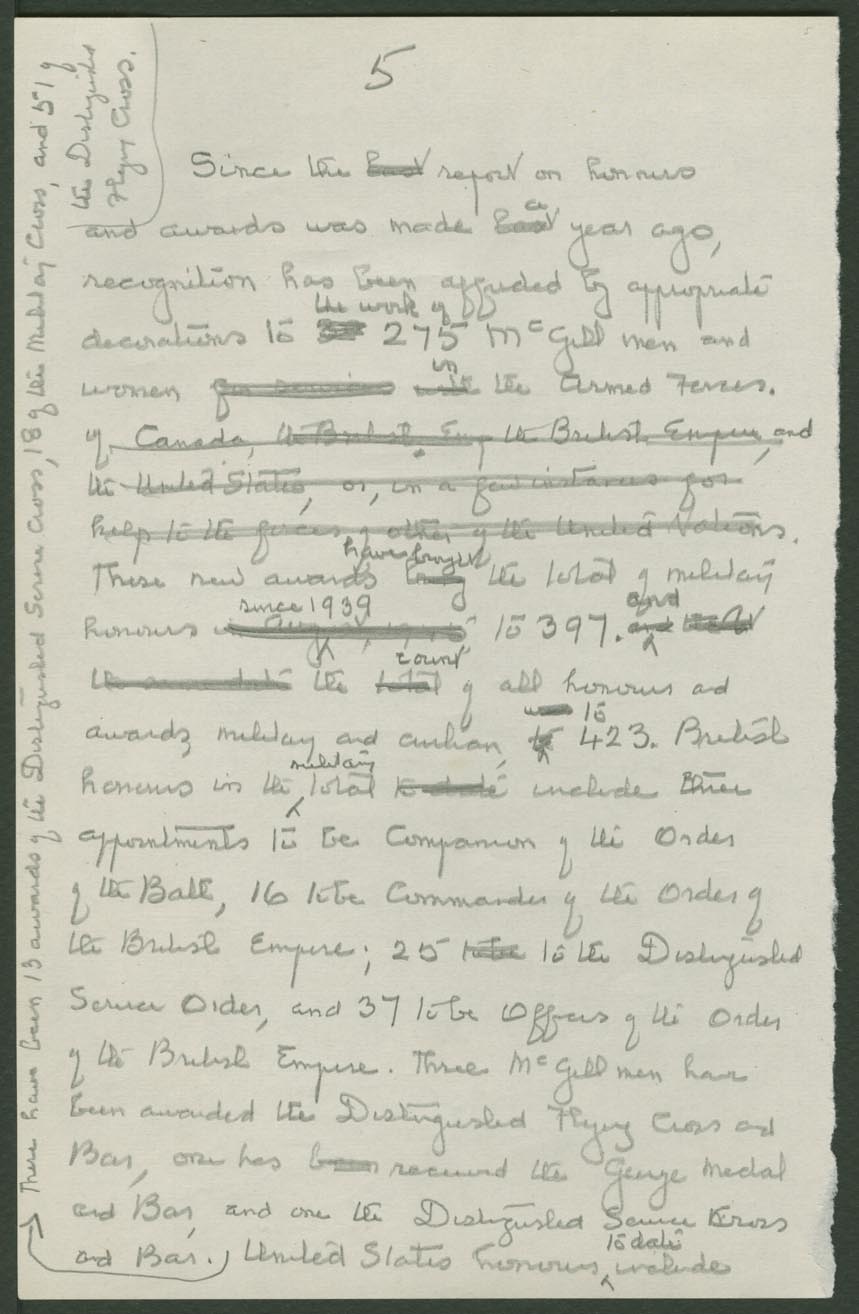 5
Since the last report on honours
a
and awards was made last year ago,
recognition has been afforded by appropriate
the work of
decorations to 275 McGill men and
in
women for services with the Armed Forces.
of Canada, the British Emp the British Empire, and
the United States, or, in a few instances for
help to the forces of other of the United Nations.
have brought
These new awards bring the total of military
since 1939 and
honours to 397. and
count
the total of all honours and
to
awards, military and civilian, to 423. British
military
honours in the total to date include three
appointments to be Companion of the Order
of the Bath, 16 to be Commander of the Order of
the British Empire; 25 to be to the Distinguished
Service Order, and 37 to be Officers of the Order
of the British Empire. Three McGill men have
been awarded the Distinguished Flying Cross and
Bar, one has been received the George Medal
and Bar, and one the Distinguished Service Cross
to date
and Bar. United States honours include
There have been 13 awards of the Distinguished Service Cross, 18 of the Military Cross, and 51 of
the Distinguished
Flying Cross.